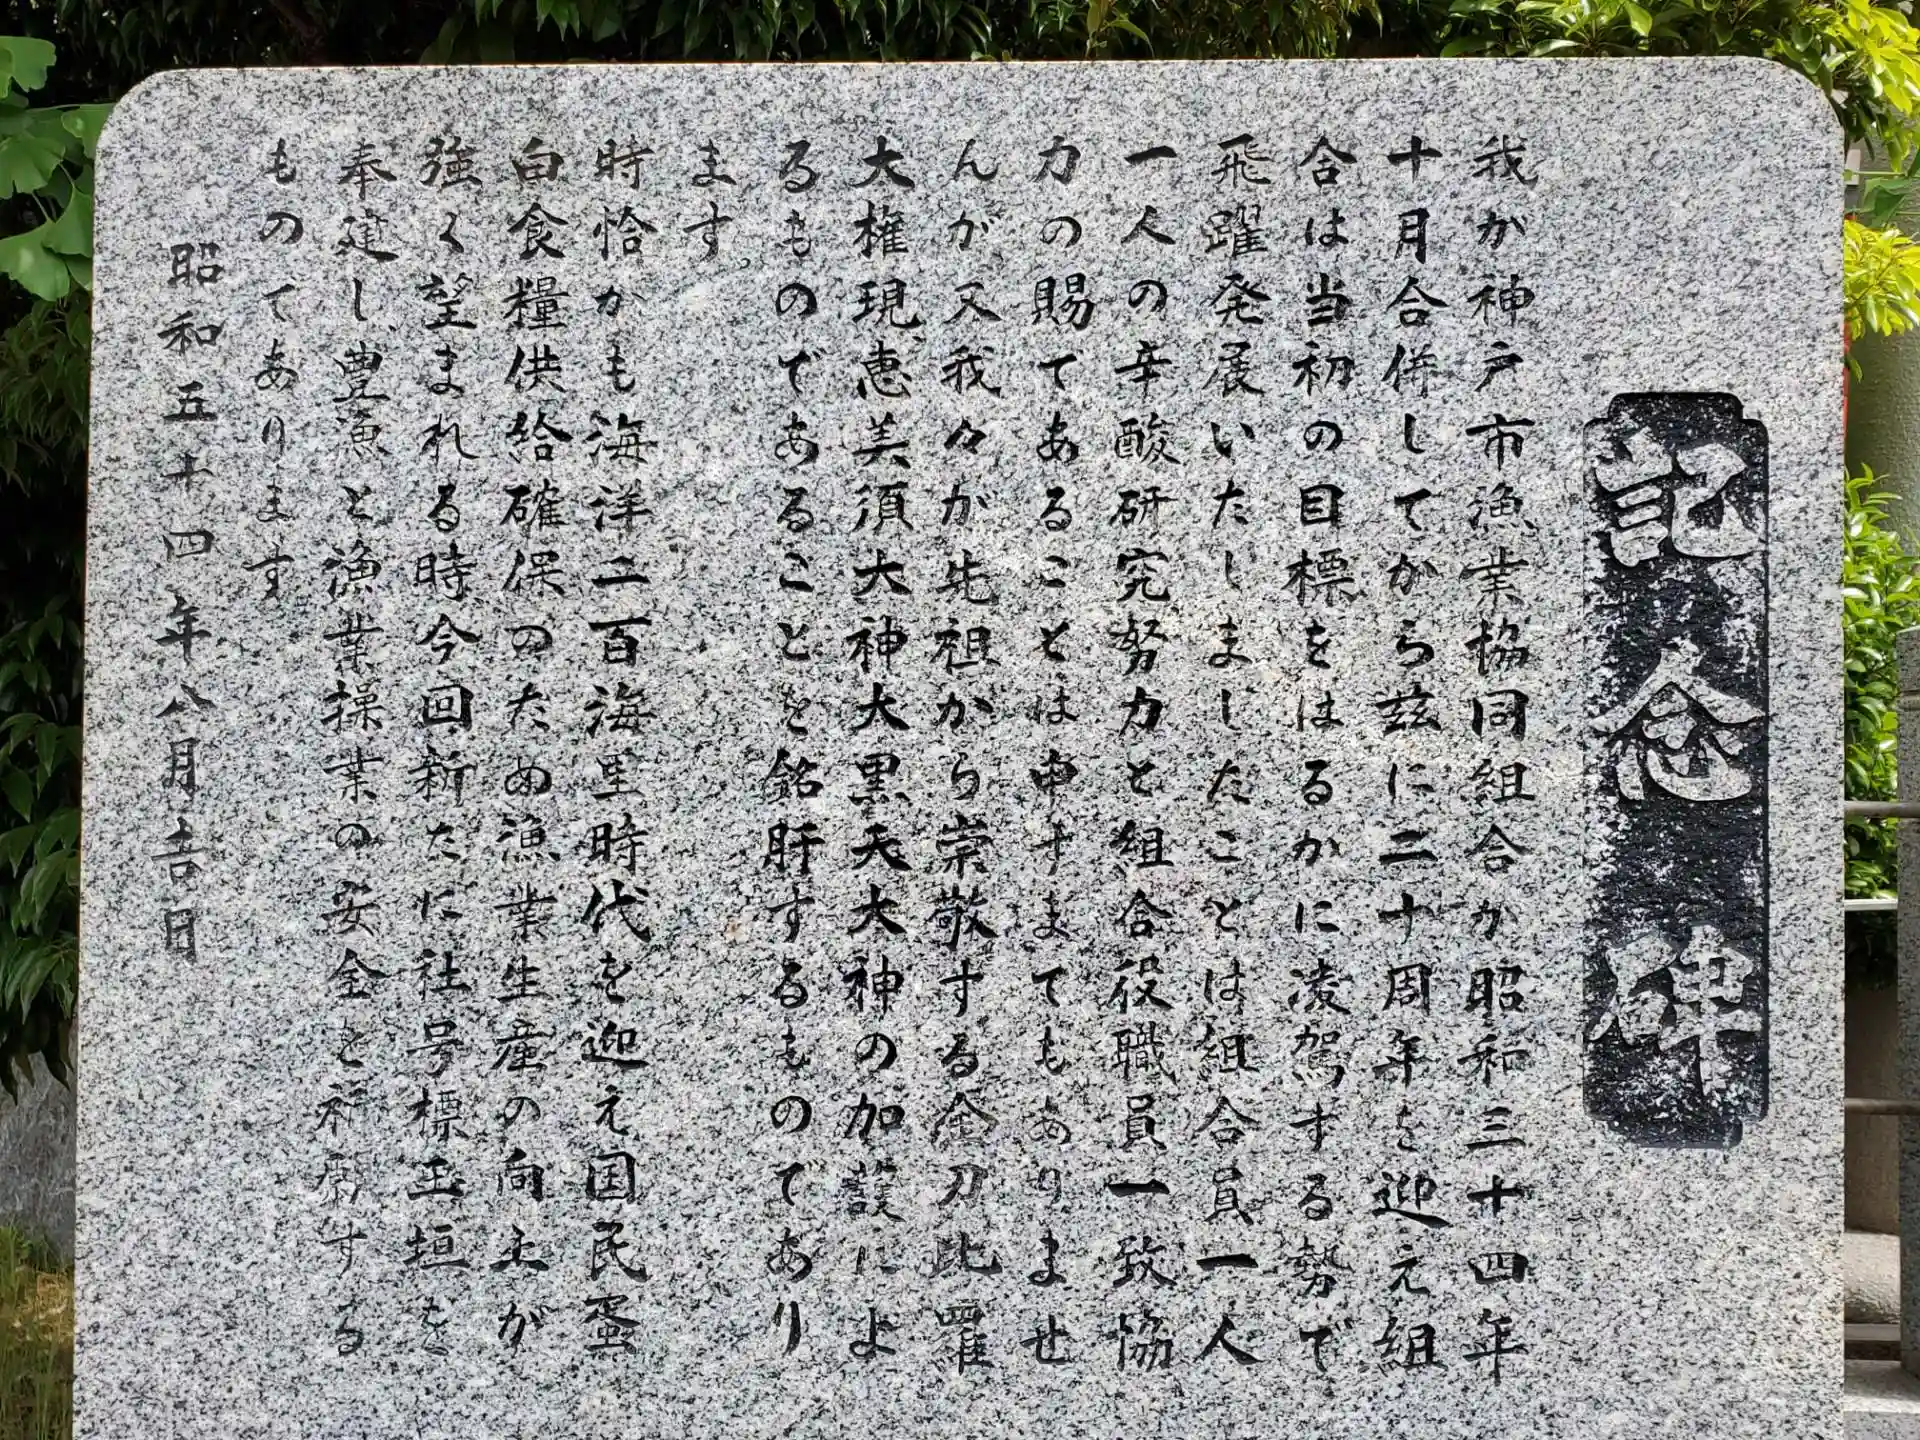 記念碑
我が神戸市漁業協同組合が昭和三十四年
十月合併してから玆に二十周年を迎え組
合は当初の目標をはるかに凌駕する勢で
飛躍発展いたしましたことは組合員一人
一人の辛酸研究努力と組合役職員一致協
力の賜であることは申すまでもありませ
んが又我々が先祖から崇敬する金刀比羅
大権現、恵美須大神大黒天大神の加護によ
るものであることを銘肝するものであり
ます。
時恰かも海洋二百海里時代を迎え国民蛋
白食糧供給確保のため漁業生産の向上が
強く望まれる時今回新たに社号標玉垣を
奉建し、豊漁と漁業操業の安全と祈願する
ものであります
昭和五十四年八月吉日